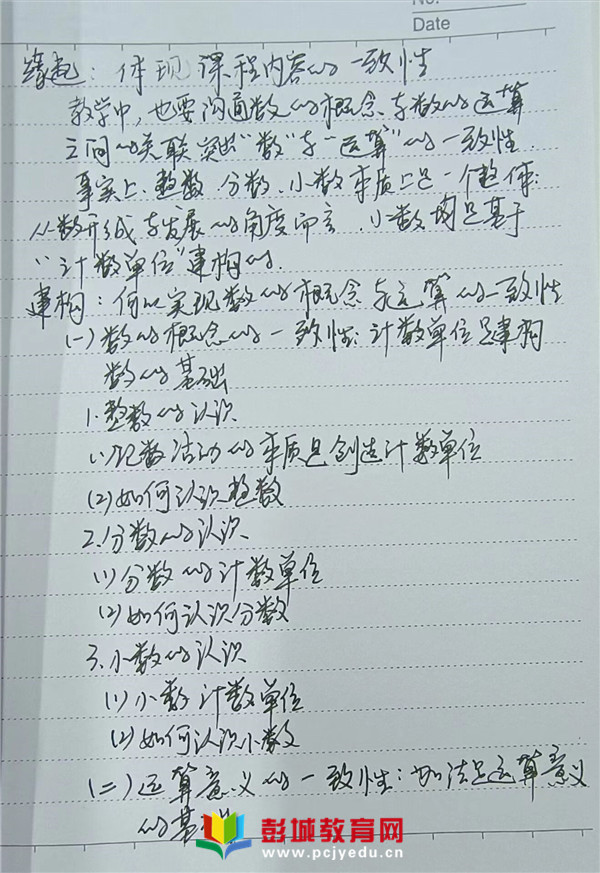 No.
Date
缘起：体现课程内容的一致性
教学中，也要沟通数的概念与数的运算
之间的关联突出“数”与“运算”的一致性.
事实上、整数 分数、小数本质上是一个整体：
从数形成与发展的角度而言、小数均是基于
“计数单位”建构的.
建构：何以实现数的概念与运算的一致性
(一)数的概念的一致性：计数单位是建构
数的基础
1.整数的认识
(1)记数活动的本质是创造计数单位
(2)如何认识整数
2.分数的认识
(1)分数的计数单位
(2)如何认识分数
3.小数的认识
(1)小数计数单位
(2)如何认识小数
(二)运算意义的一致性：加法是运算意义
的基
彭城教育网
www.pcjyedu.cn